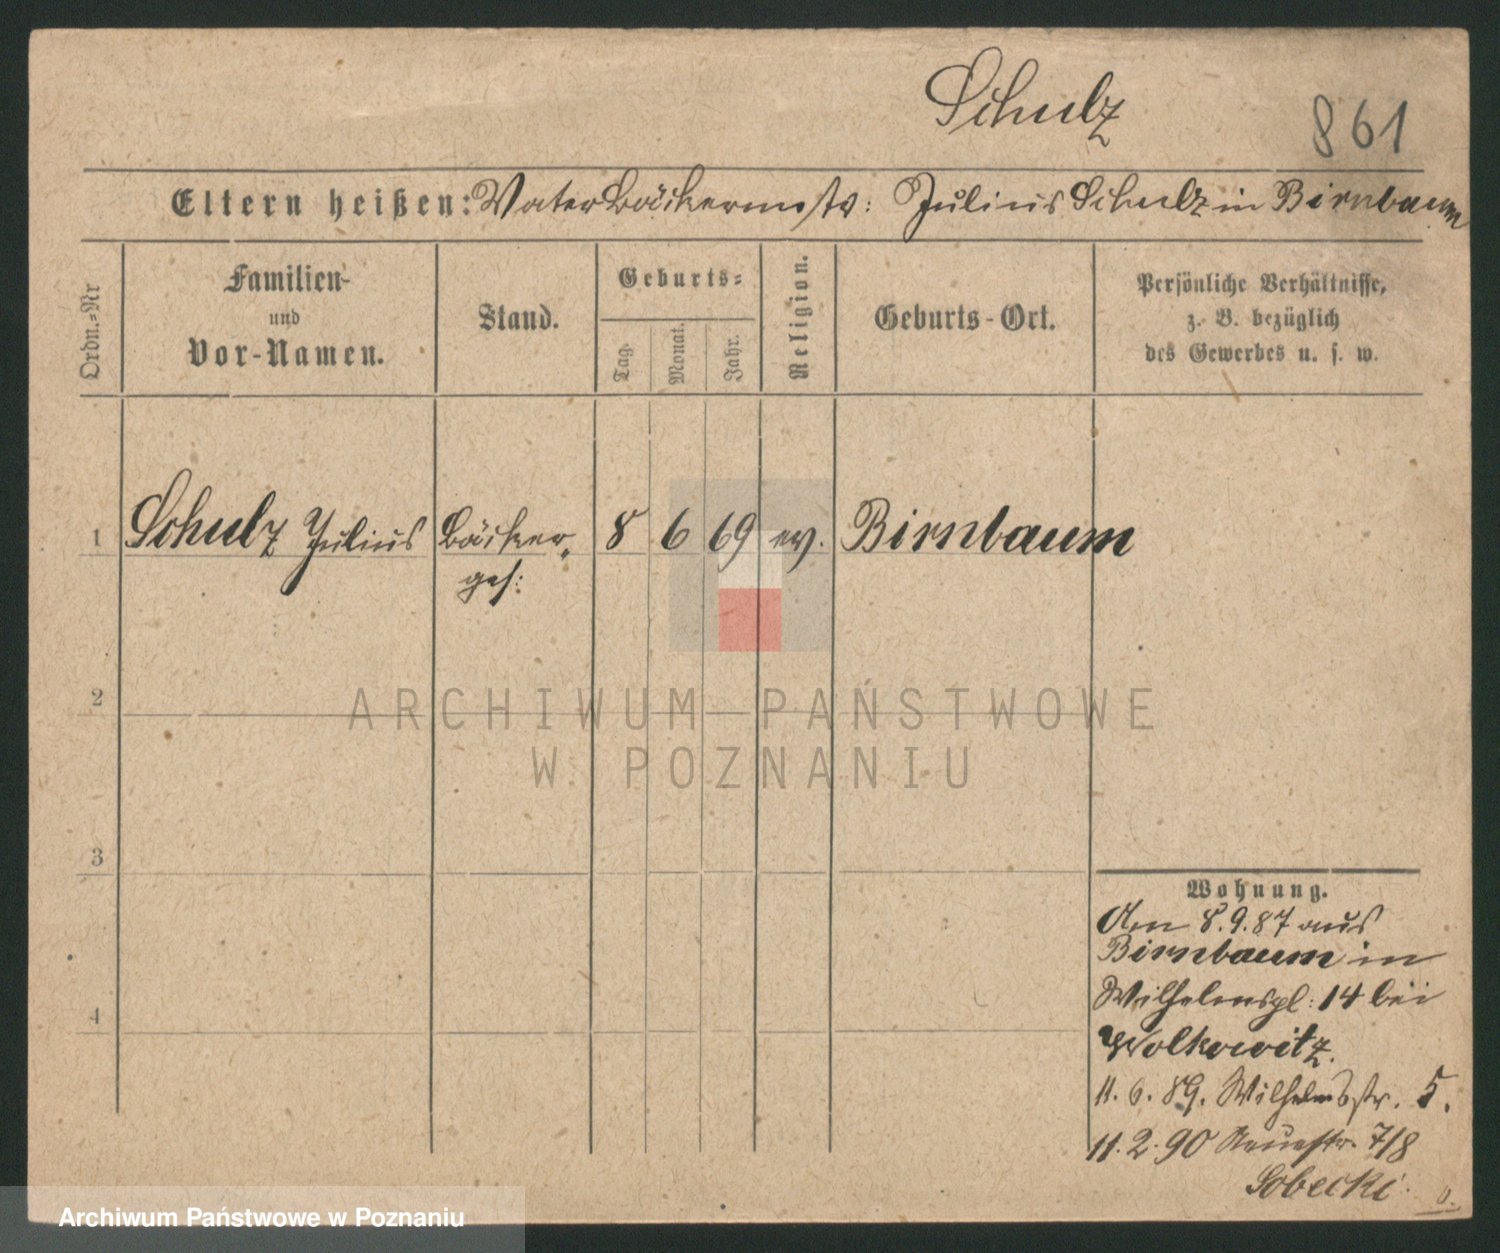 Schulz
861
Eltern heißen: Vater Bäckermstr: Julius Schulz in Birnbaum
Ordn.-Nr
Familien-
und
Vor-Namen.
Stand.
Geburts-
Tag.
Monat.
Jahr.
Religion.
Geburts-Ort.
Persönliche Verhältnisse,
z. B. bezüglich
des Gewerbes u. s. w.
1 Schulz Julius Bäcker- 8 6 69 ev. Birnbaum
ges:
2
3
4
Wohnung.
Am 8.9.87 aus
Birnbaum in
Wilhelmspl: 14 bei
Wolkowitz.
11. 6. 89. Wilhelmsstr. 5.
11.2.90 Neuestr. 7/8
Sobecki.
ARCHIWUM PAŃSTWOWE
W POZNANIU
Archiwum Państwowe w Poznaniu